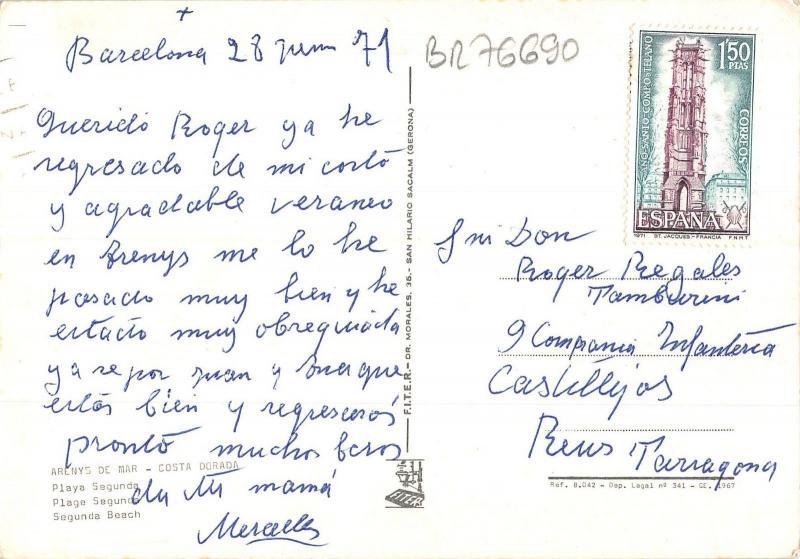 +
Barcelona 28 junio 71
BR76690
Querido Roger ya he
regresado de mi corto
y agradable veraneo
en Arenys me lo he
pasado muy bien y he
estado muy obsequiada
ya se por Juan y que
estás bien y regresarás
pronto muchos besos
da tu mamá
Mercedes
ARENYS DE MAR - COSTA DORADA
Playa Segunda
Plage Segunda
Segunda Beach
F.I.T.E.R.- DR. MORALES, 35.- SAN HILARIO SACALM (GERONA)
FITER
AÑO SANTO COMPOSTELANO
1'50
PTAS
CORREOS
ESPAÑA
1971 ST. JACQUES - FRANCIA F.N.M.T
Don
Roger Regales
Tamburini
9 Compania Infanteria
Castillejos
Reus Tarragona
Ref. 8.042 - Dep. Legal nº 341 - GE. 1967